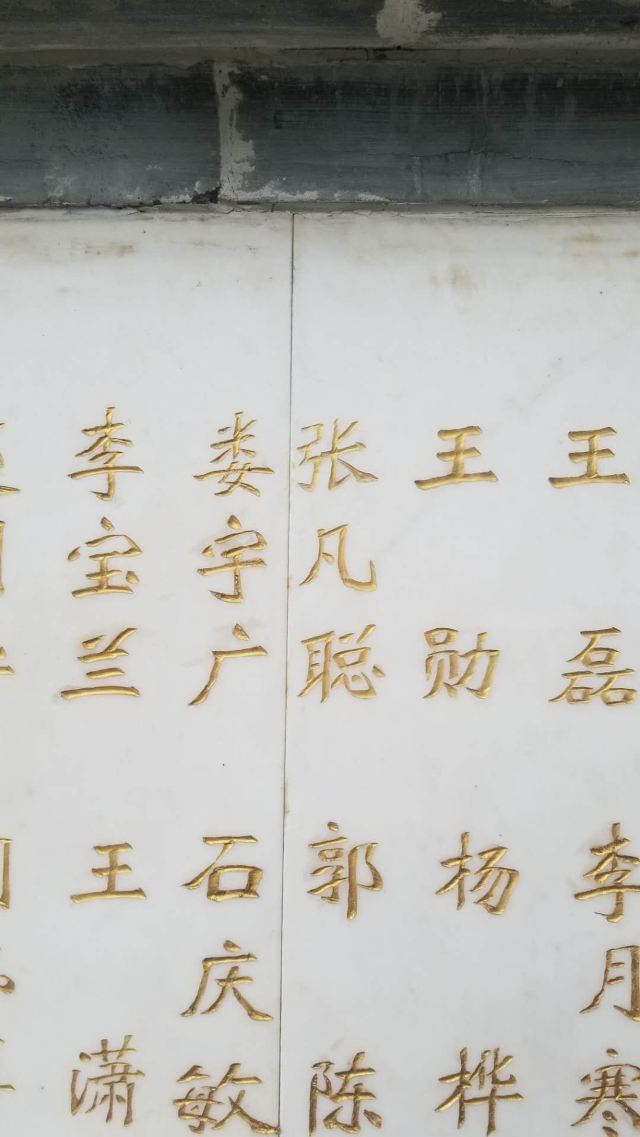 王磊 李月寒
王勋 杨桦
张凡聪 郭陈
娄宇广 石庆敏
李宝兰 王潇